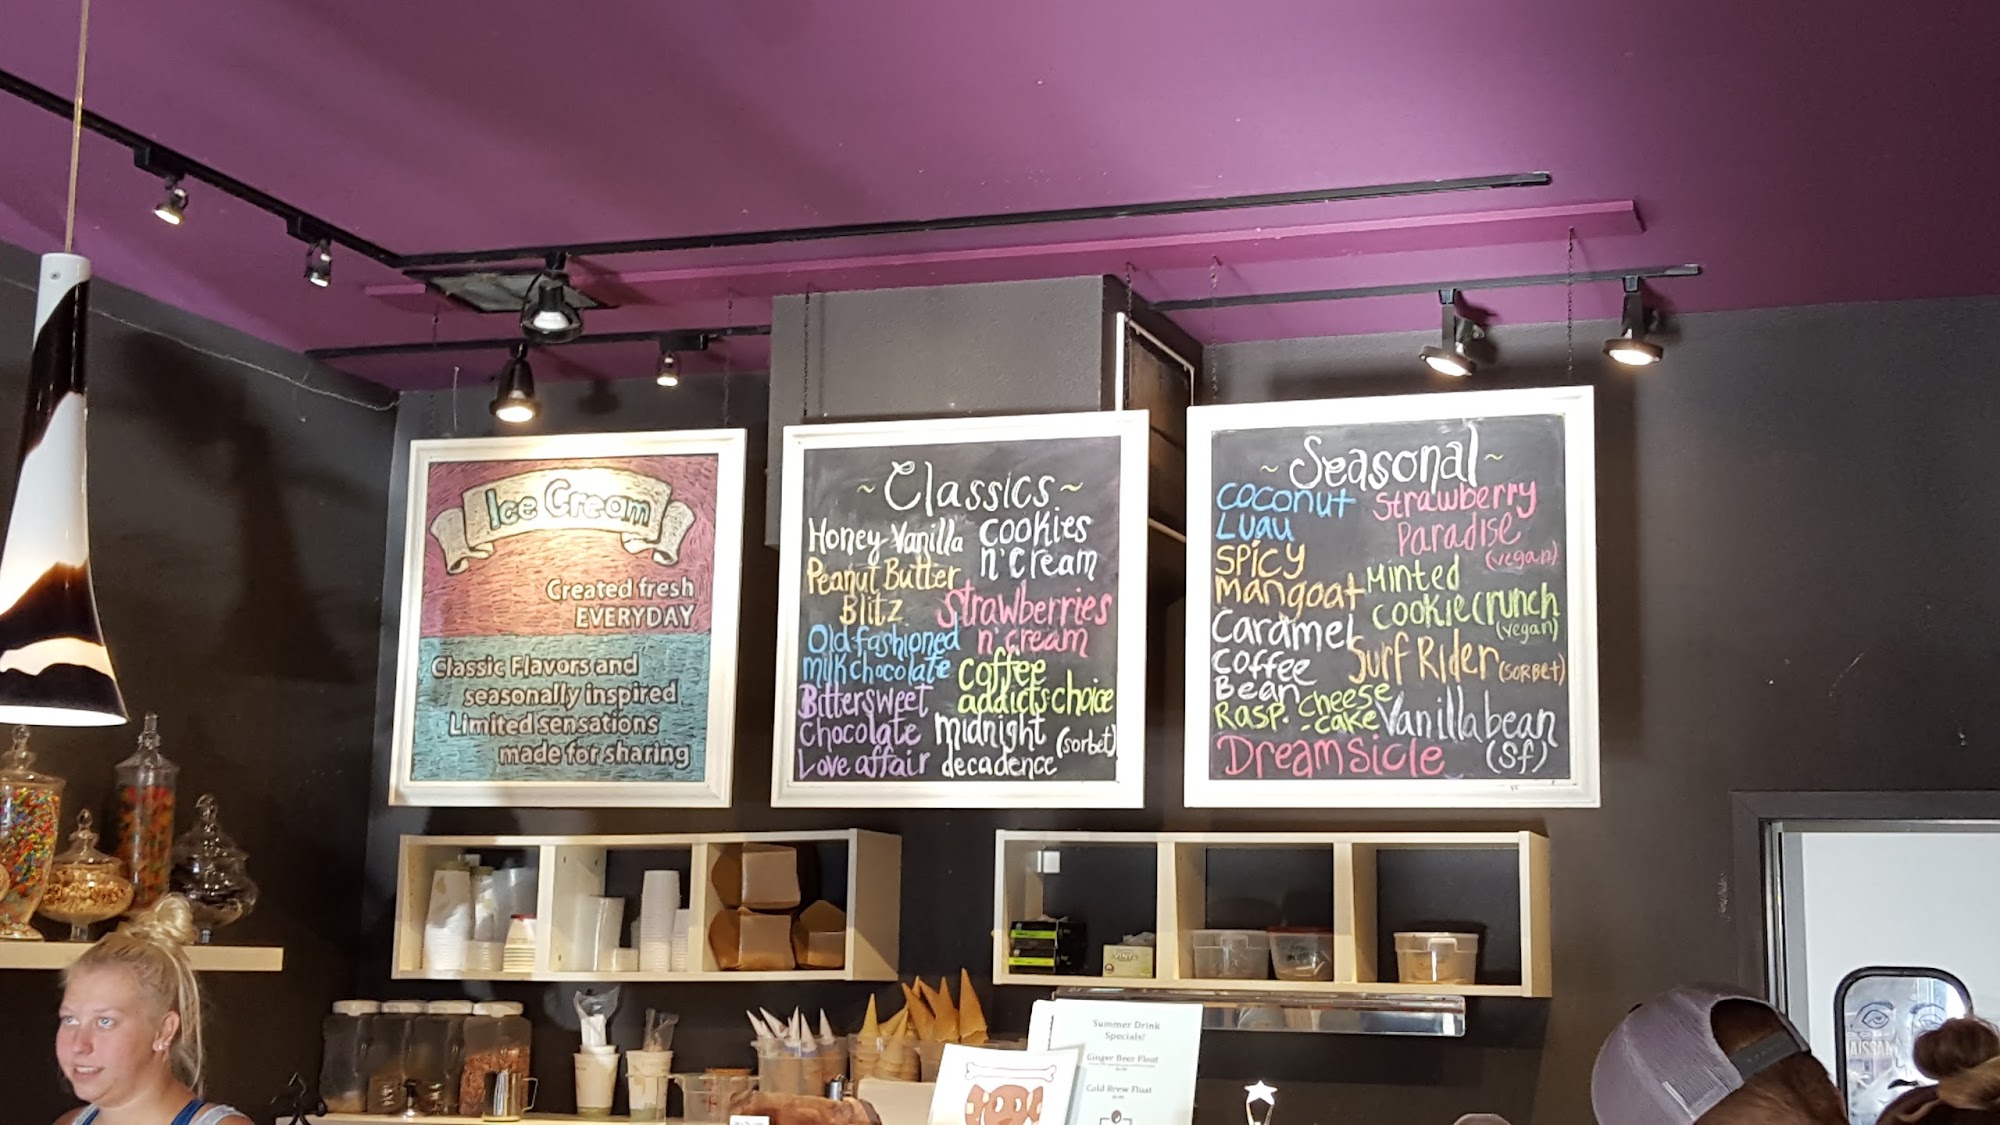 Ice Cream
Created fresh
EVERYDAY
Classic Flavors and
seasonally inspired
Limited sensations
made for sharing
~ Classics ~
Honey Vanilla
Peanut Butter
Blitz
Old-fashioned
milk chocolate
Bittersweet
Chocolate
Love affair
Cookies
n' Cream
Strawberries
n' cream
Coffee
addicts choice
Midnight
decadence
(sorbet)
~ Seasonal ~
Coconut
Luau
Spicy
Mangoat
Caramel
Coffee
Bean
Rasp. Cheese
-cake
Dreamsicle
Strawberry
Paradise
(vegan)
Minted
Cookie Crunch
(vegan)
Surf Rider (sorbet)
Vanilla bean
(sf)
Summer Drink
Specials!
Ginger Beer Float
Cold Brew Float